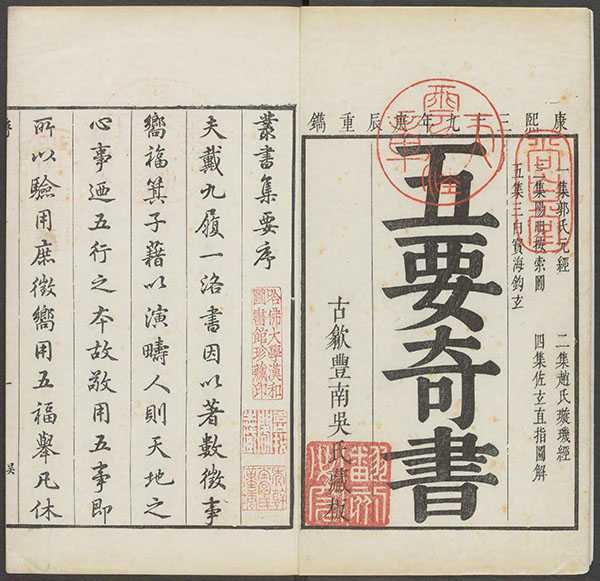 康熙三十九年庚辰重鐫
一集郭氏元經
二集趙氏璇璣經
三集陽明按索圖
四集佐玄直指圖解
五集三白寶海鈎玄
五要奇書
古歙豐南吳氏藏板
翻刻必究
叢書集要序
哈佛大學漢和圖書館珍藏印
夫戴九履一洛書因以著數徵事
嚮福箕子藉以演疇人則天地之
心事迺五行之本故敬用五事即
所以驗用庶徵嚮用五福舉凡休
序
一
吳